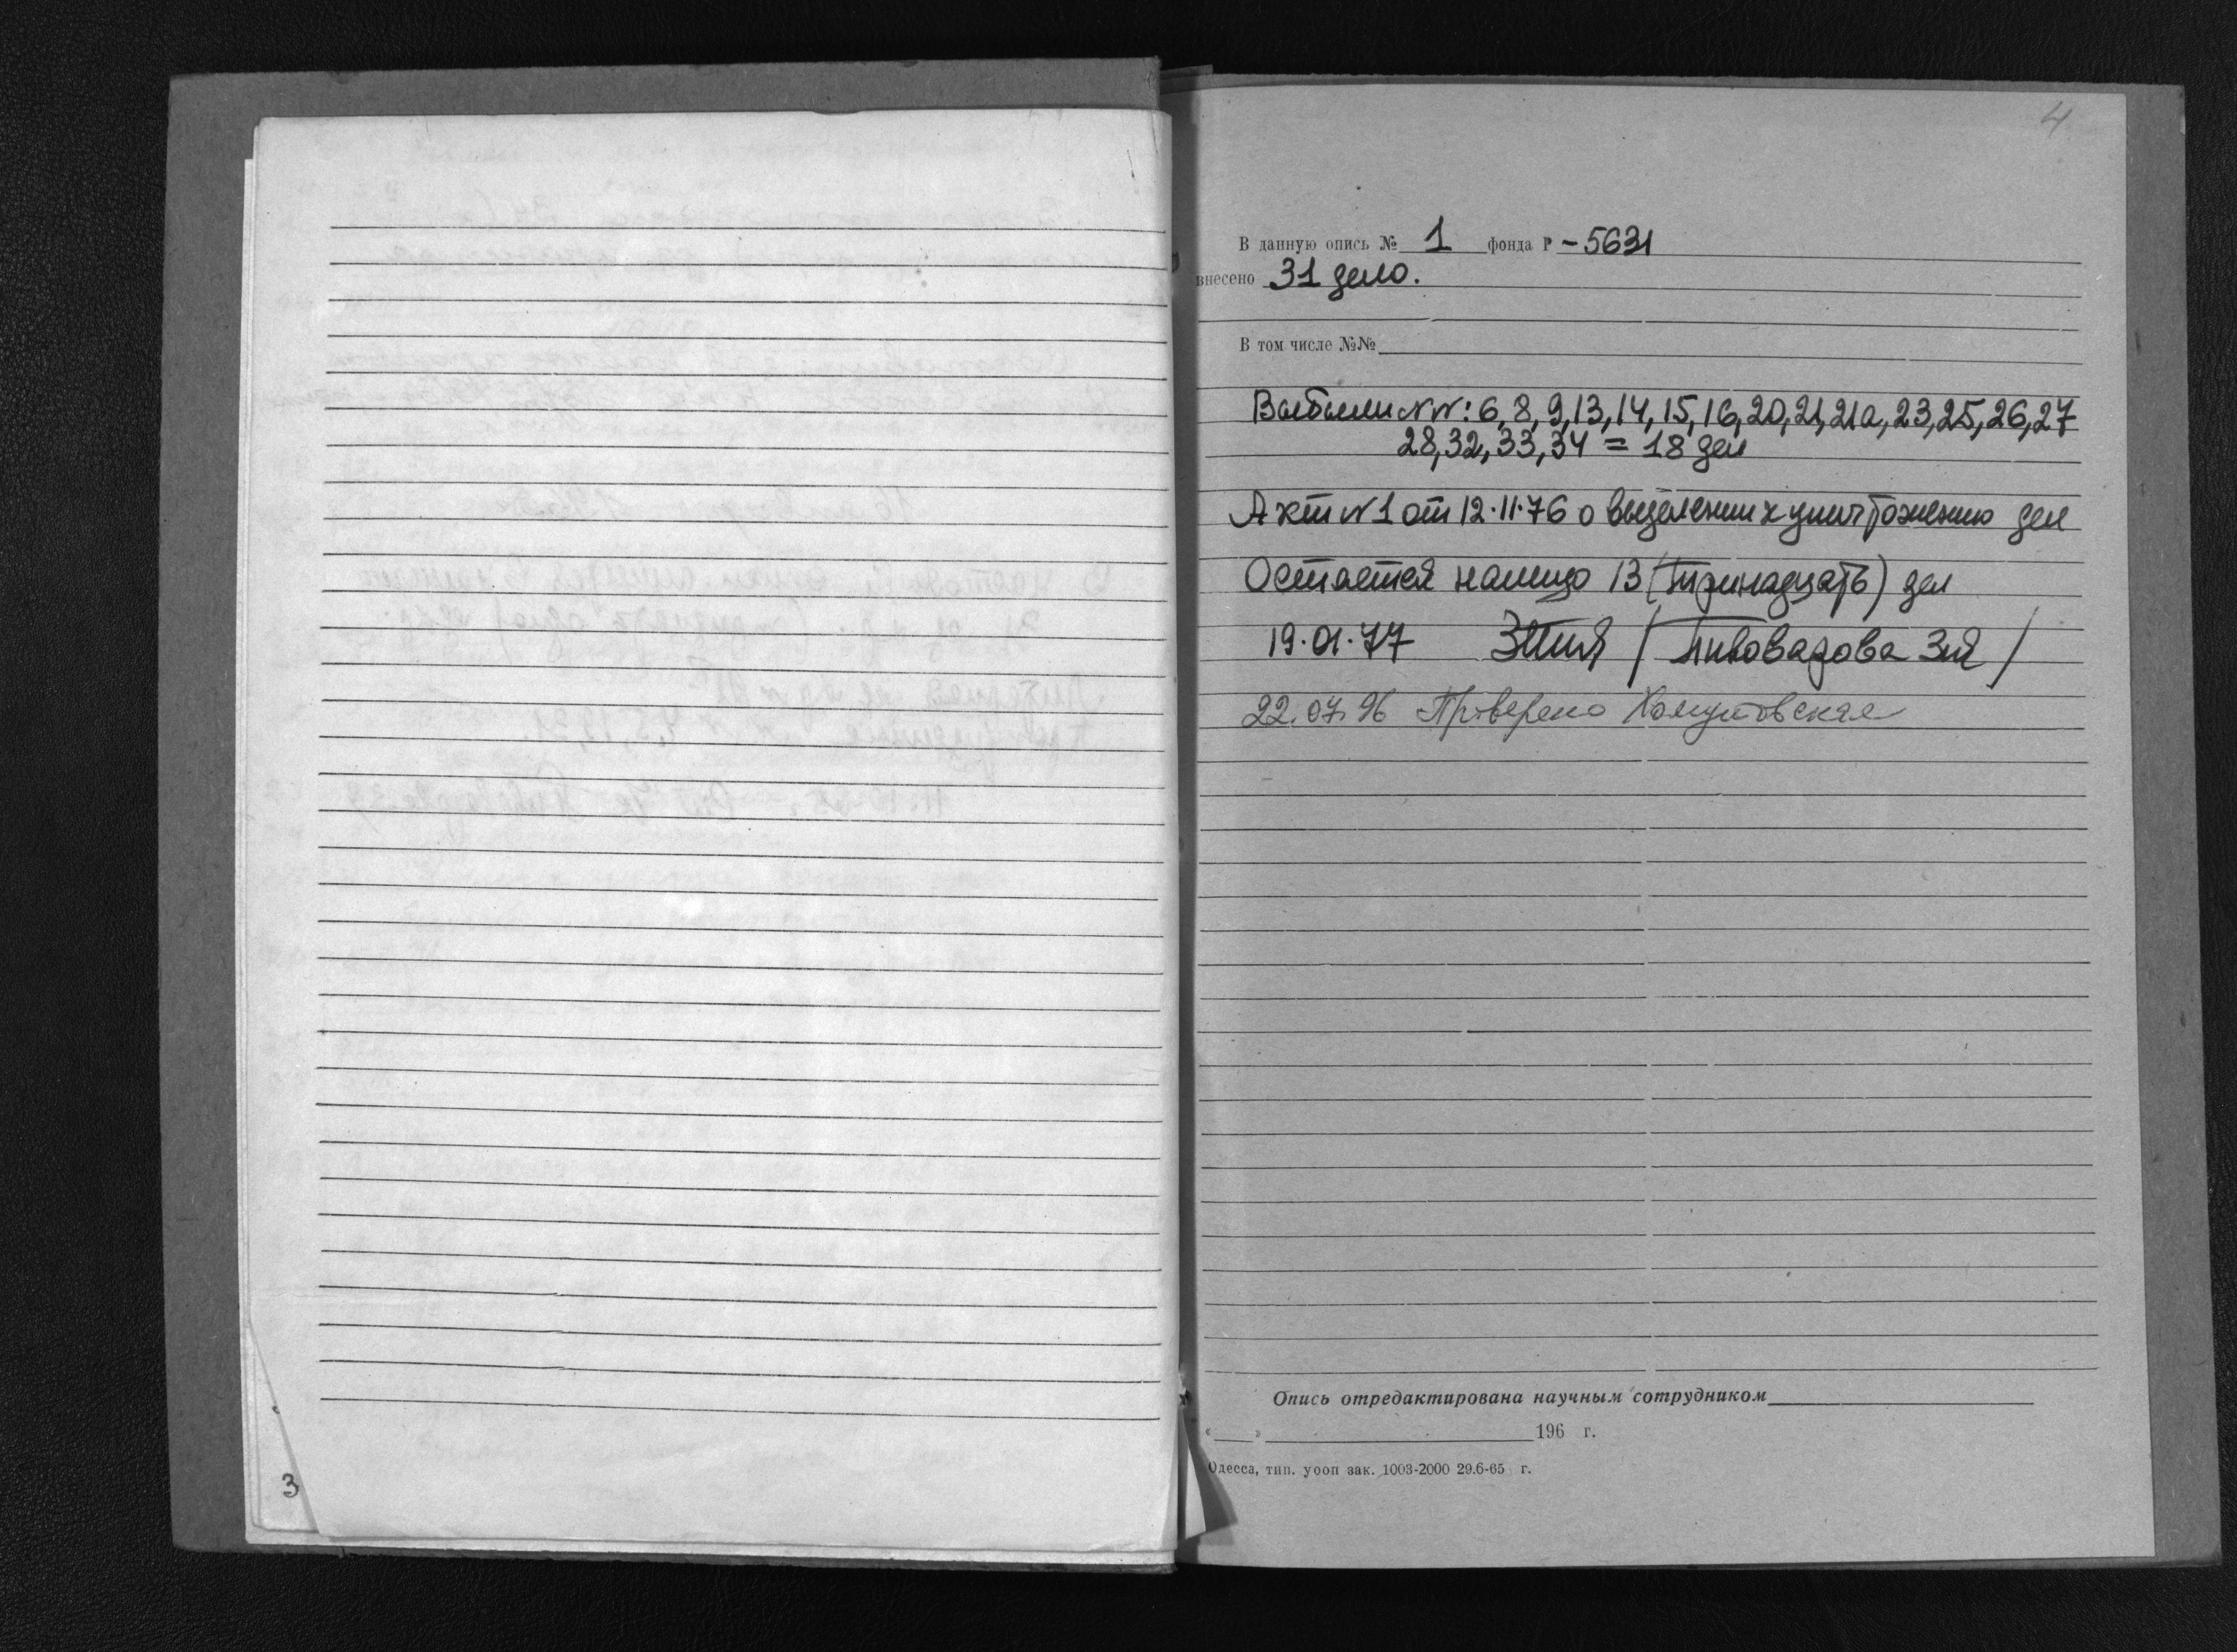 4
В данную опись № 1 фонда Р - 5631
внесено 31 дело.
В том числе №№
Выбыли NN: 6, 8, 9, 13, 14, 15, 16, 20, 21, 21а, 23, 25, 26, 27
28, 32, 33, 34 = 18 дел
Акт N 1 от 12.11.76 о выделении к уничтожению дел
Остается налицо 13 (тринадцать) дел
19.01.77 / Пивоварова /
22.07.96 Проверено Хомутовская
Опись отредактирована научным сотрудником
« » 196 г.
Одесса, тип. уооп зак. 1003-2000 29.6-65 г.
3